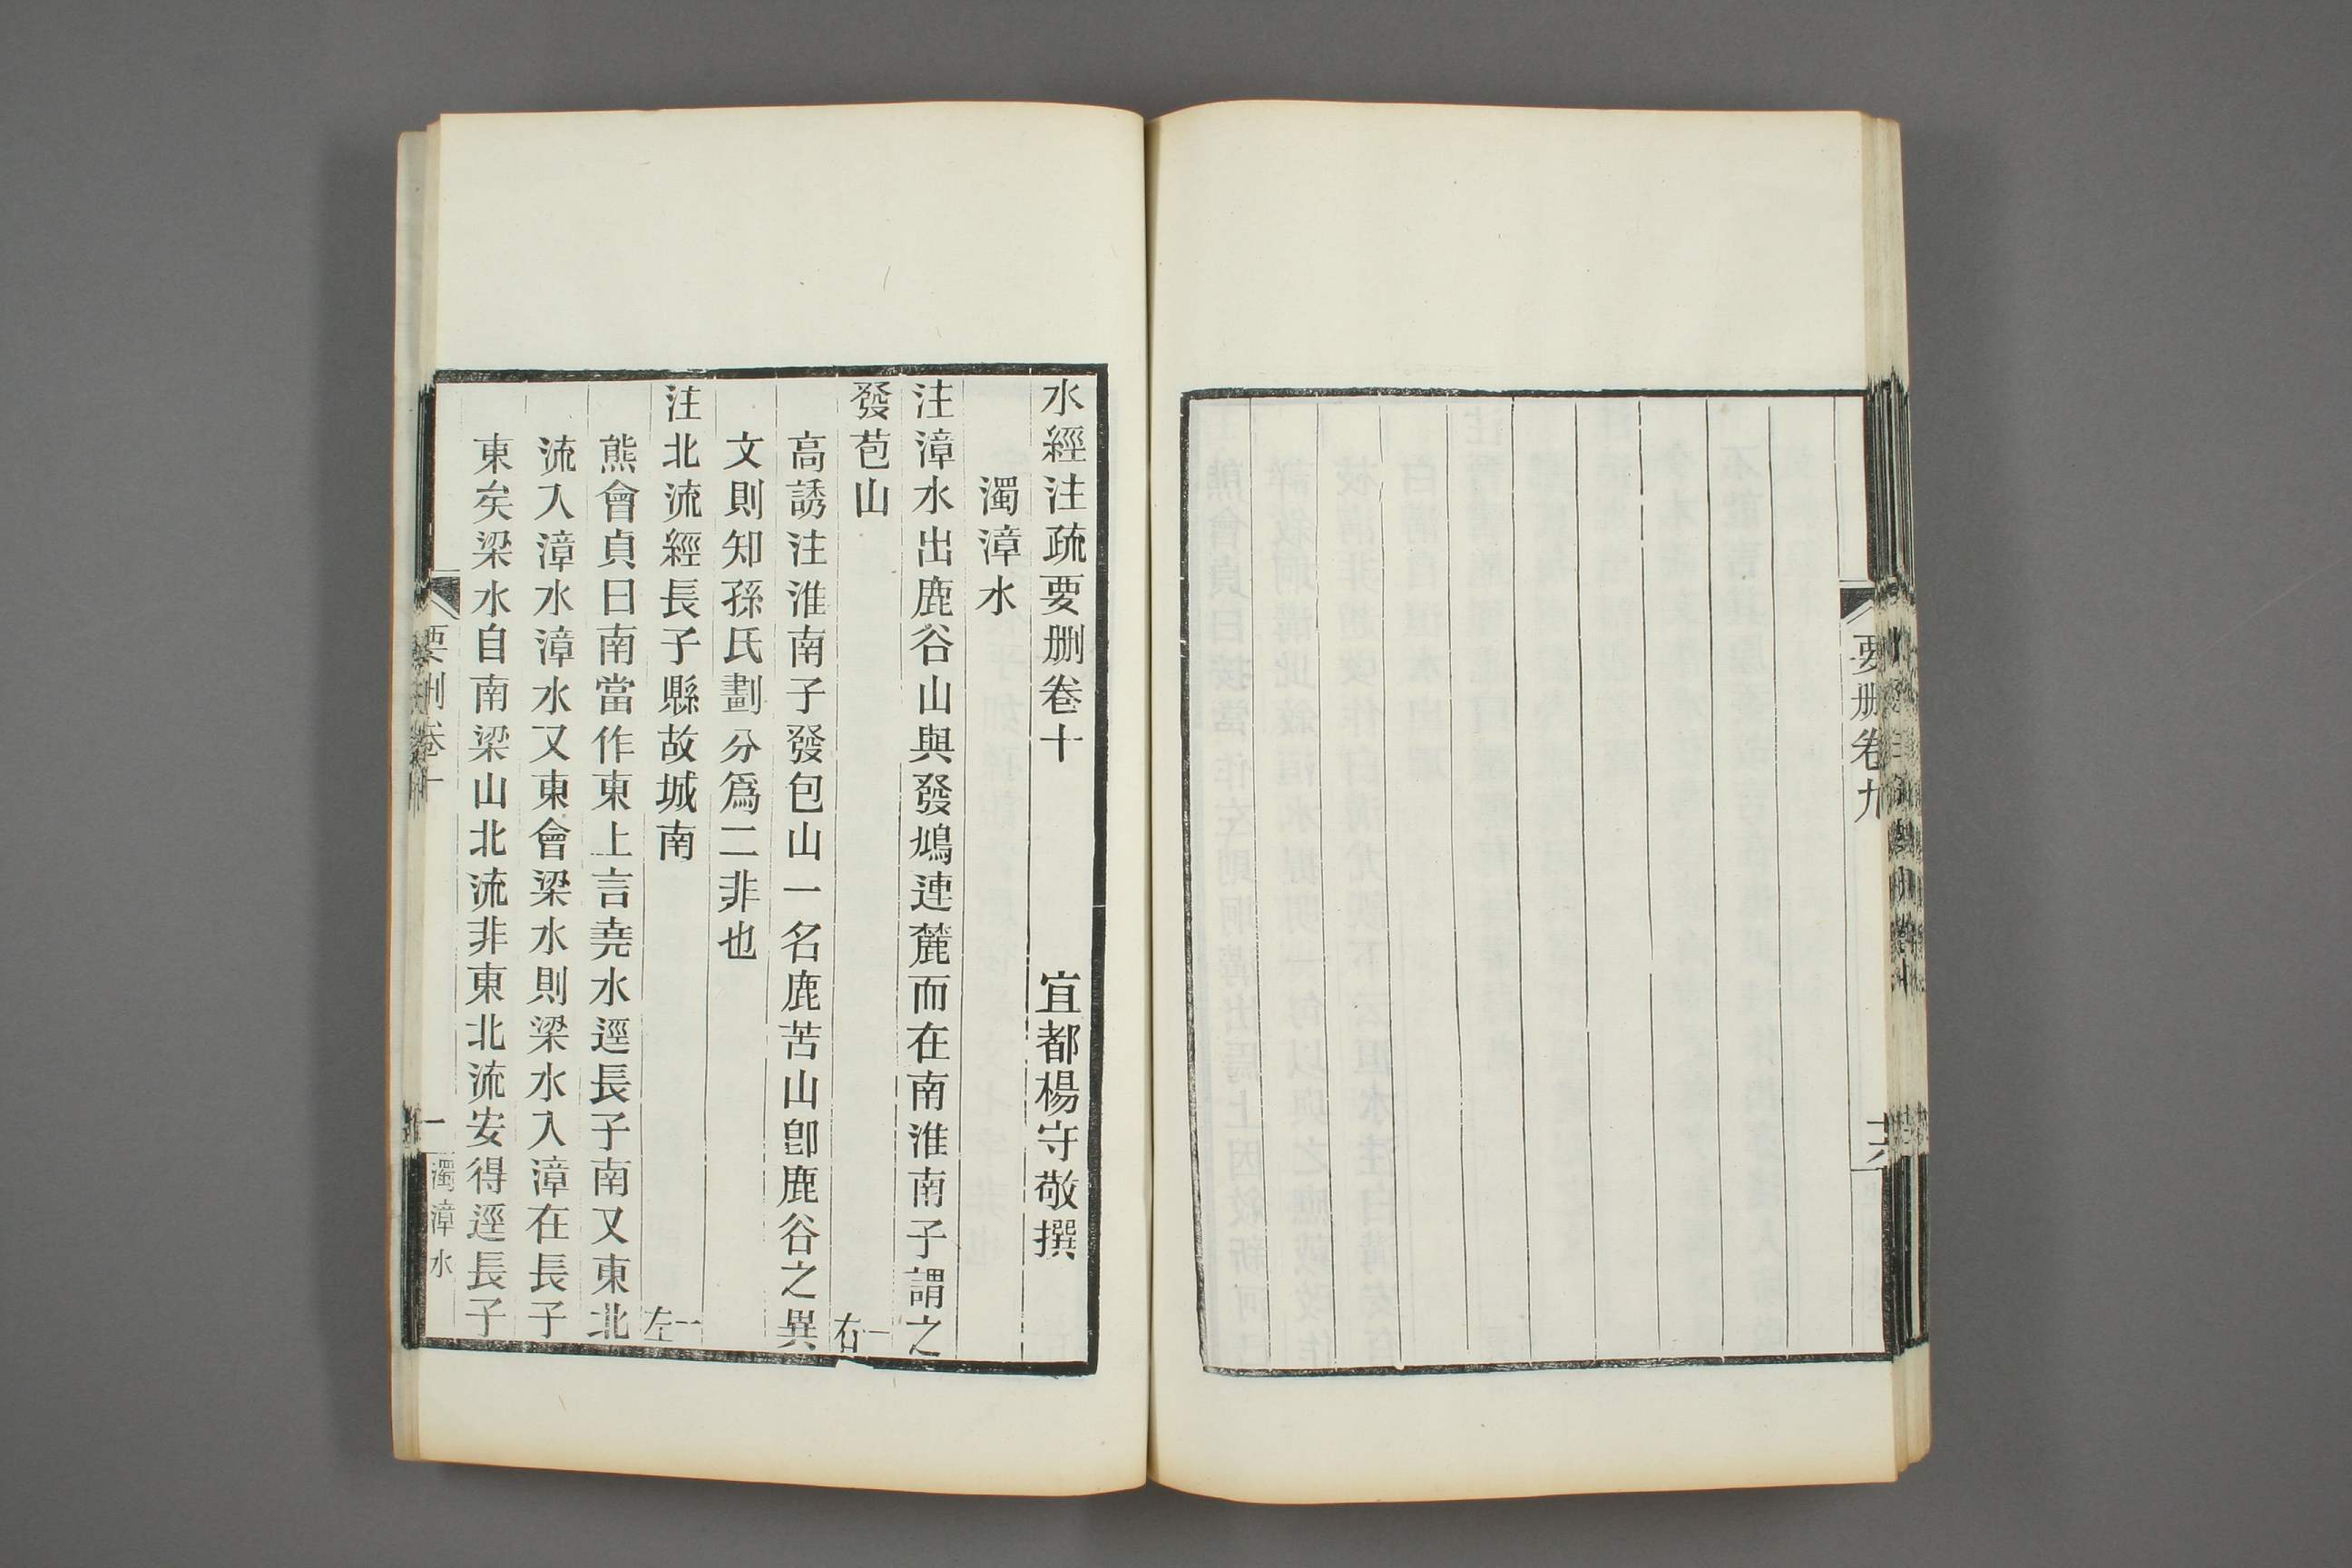 要删卷九
水經注疏要删卷十　宜都楊守敬撰
濁漳水
注漳水出鹿谷山與發鳩連麓而在南淮南子謂之
發苞山　一右
高誘注淮南子發包山一名鹿苦山卽鹿谷之異
文則知孫氏劃分爲二非也
注北流經長子縣故城南　一左
熊會貞曰南當作東上言堯水逕長子南又東北
流入漳水漳水又東會梁水則梁水入漳在長子
東矣梁水自南梁山北流非東北流安得逕長子
要删卷十
一
濁漳水